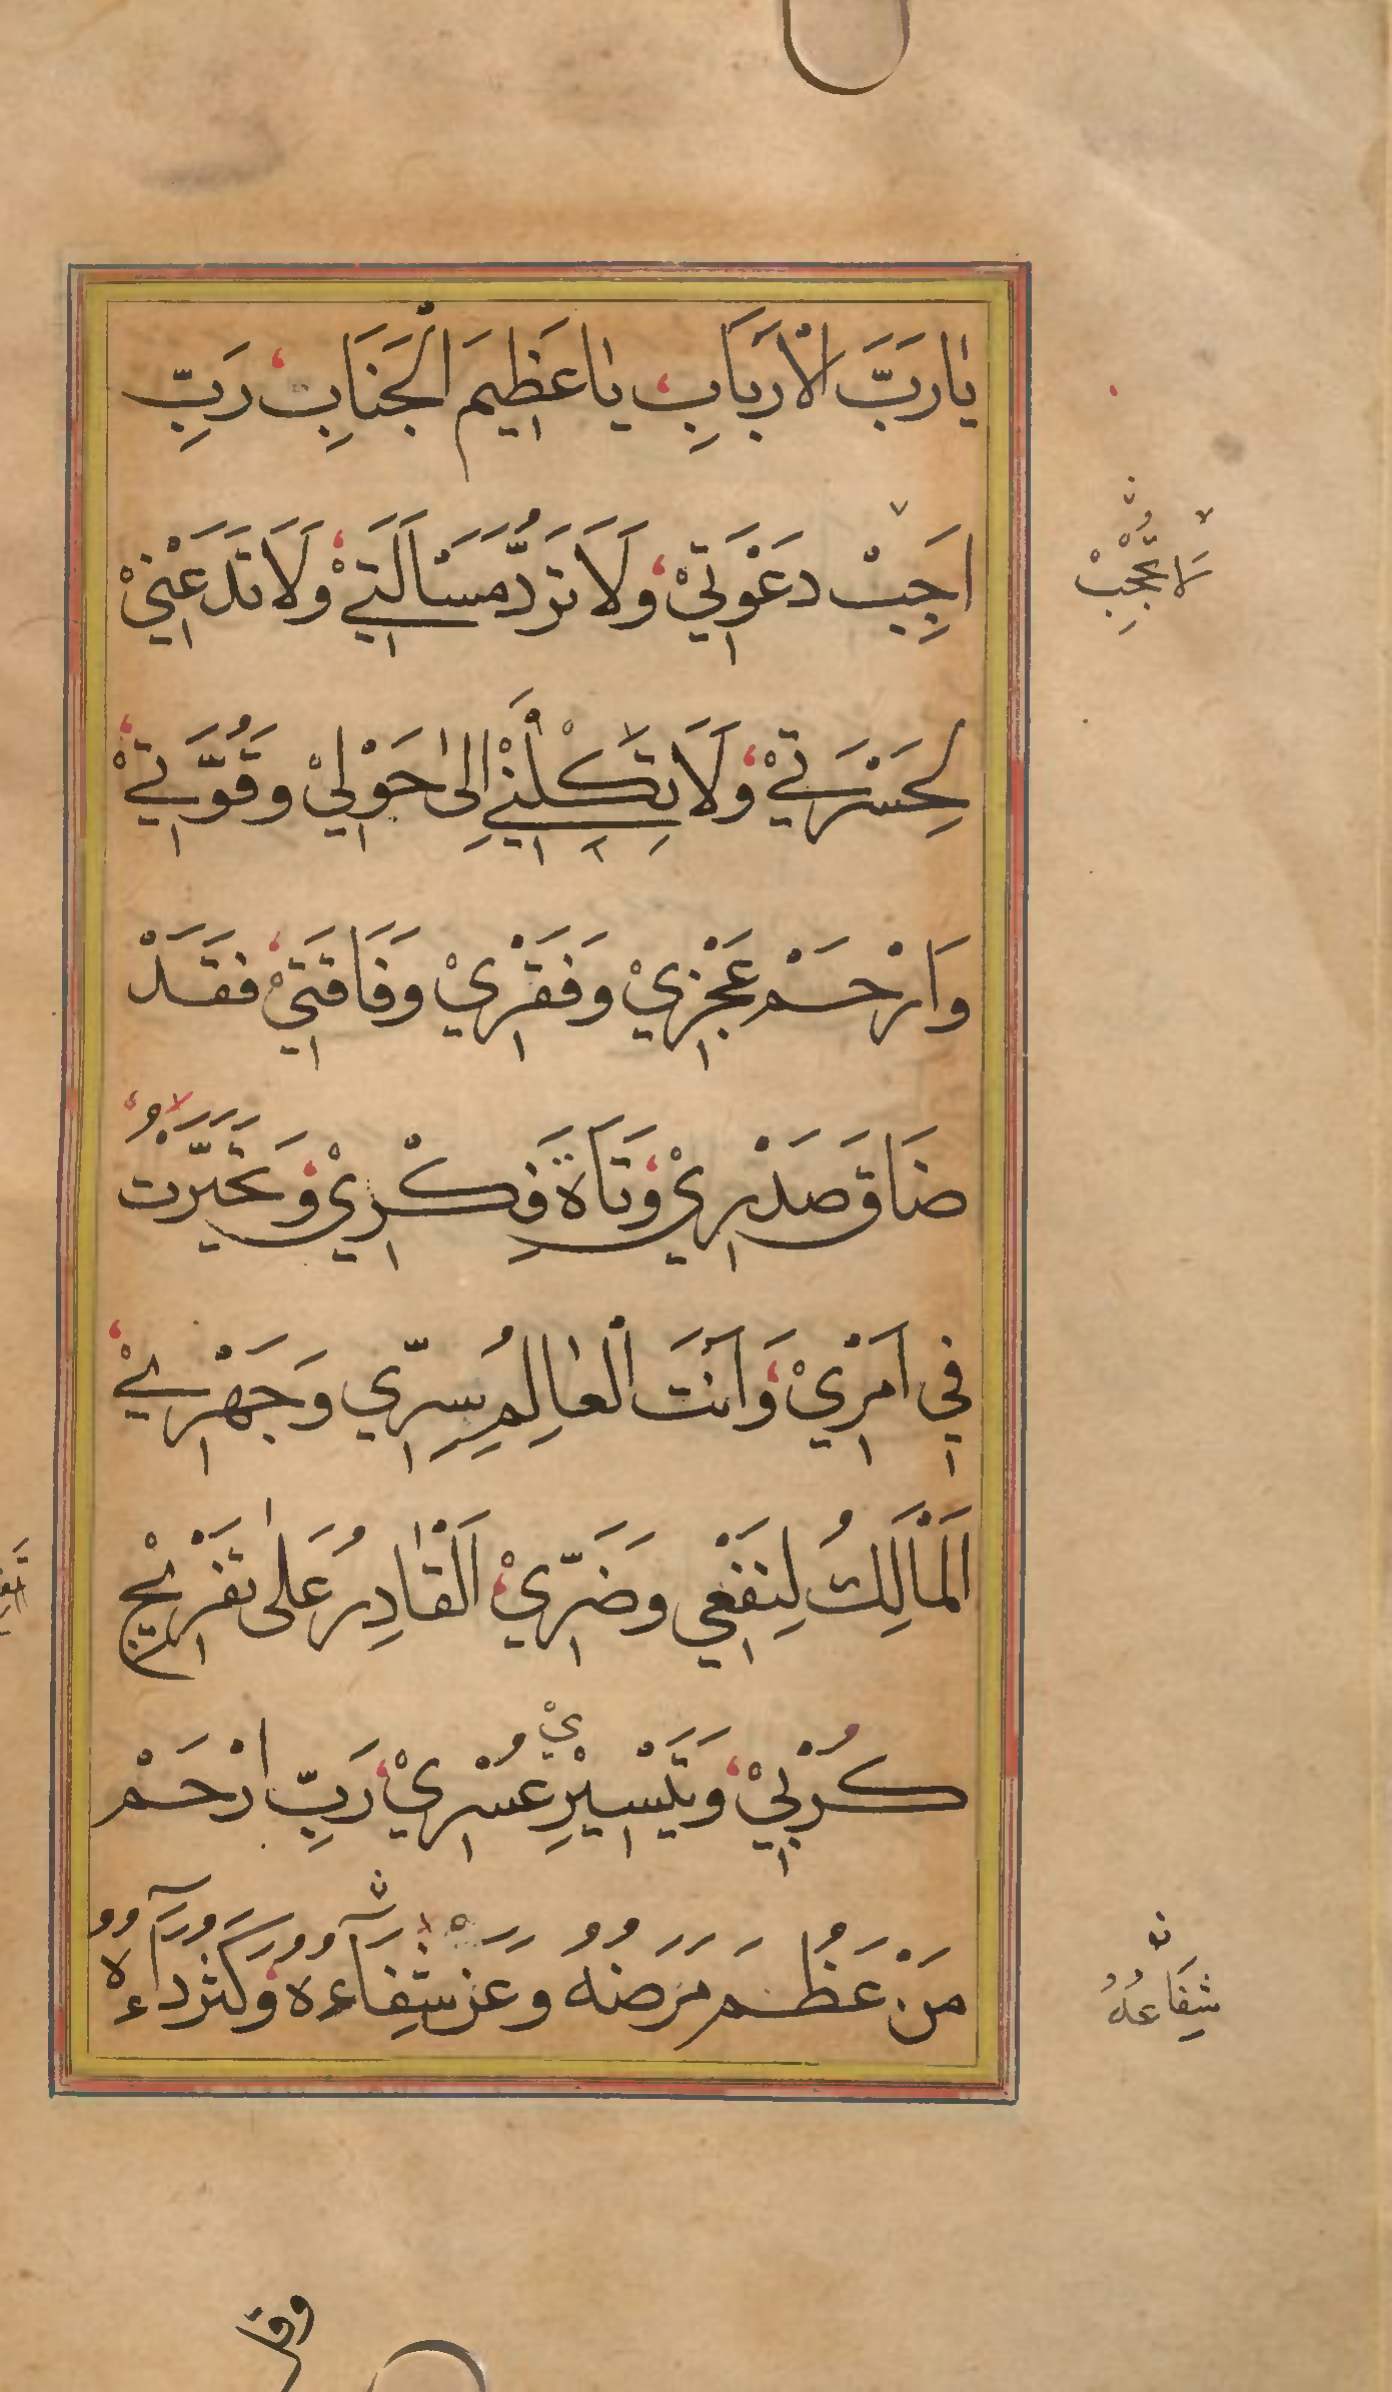 يٰارَبَّ الْاَرْبَابِ يٰاعَظِيمَ الْجَنَابِ رَبِّ
اَجِبْ دَعْوَتِيْ وَلَا تَرُدَّ مَسْاَلَتِيْ وَلَا تَدَعْنِيْ
لِحَسْرَتِيْ وَلَا تَكِلْنِيْ اِلىٰ حَوْلِيْ وَقُوَّتِيْ
وَارْحَمْ عَجْزِيْ وَفَقْرِيْ وَفَاقَتِيْ فَقَدْ
ضَاقَ صَدْرِيْ وَتَاهَ فِكْرِيْ وَتَحَيَّرْتُ
فِي اَمْرِيْ وَاَنْتَ الْعٰالِمُ بِسِرِّي وَجَهْرِيْ
اَلْمَالِكُ لِنَفْعِي وَضَرِّيْ اَلْقٰادِرُ عَلىٰ تَفْرِيْجِ
كُرْبِيْ وَتَيْسِيْرِ عُسْرِيْ رَبِّ ارْحَمْ
مَنْ عَظُمَ مَرَضُهُ وَعَزَّ شِفَآءُهُ وَكَثُرَ دَآءُهُ
لَا تُحْجِبْ
شِفَاعُهُ
وقا